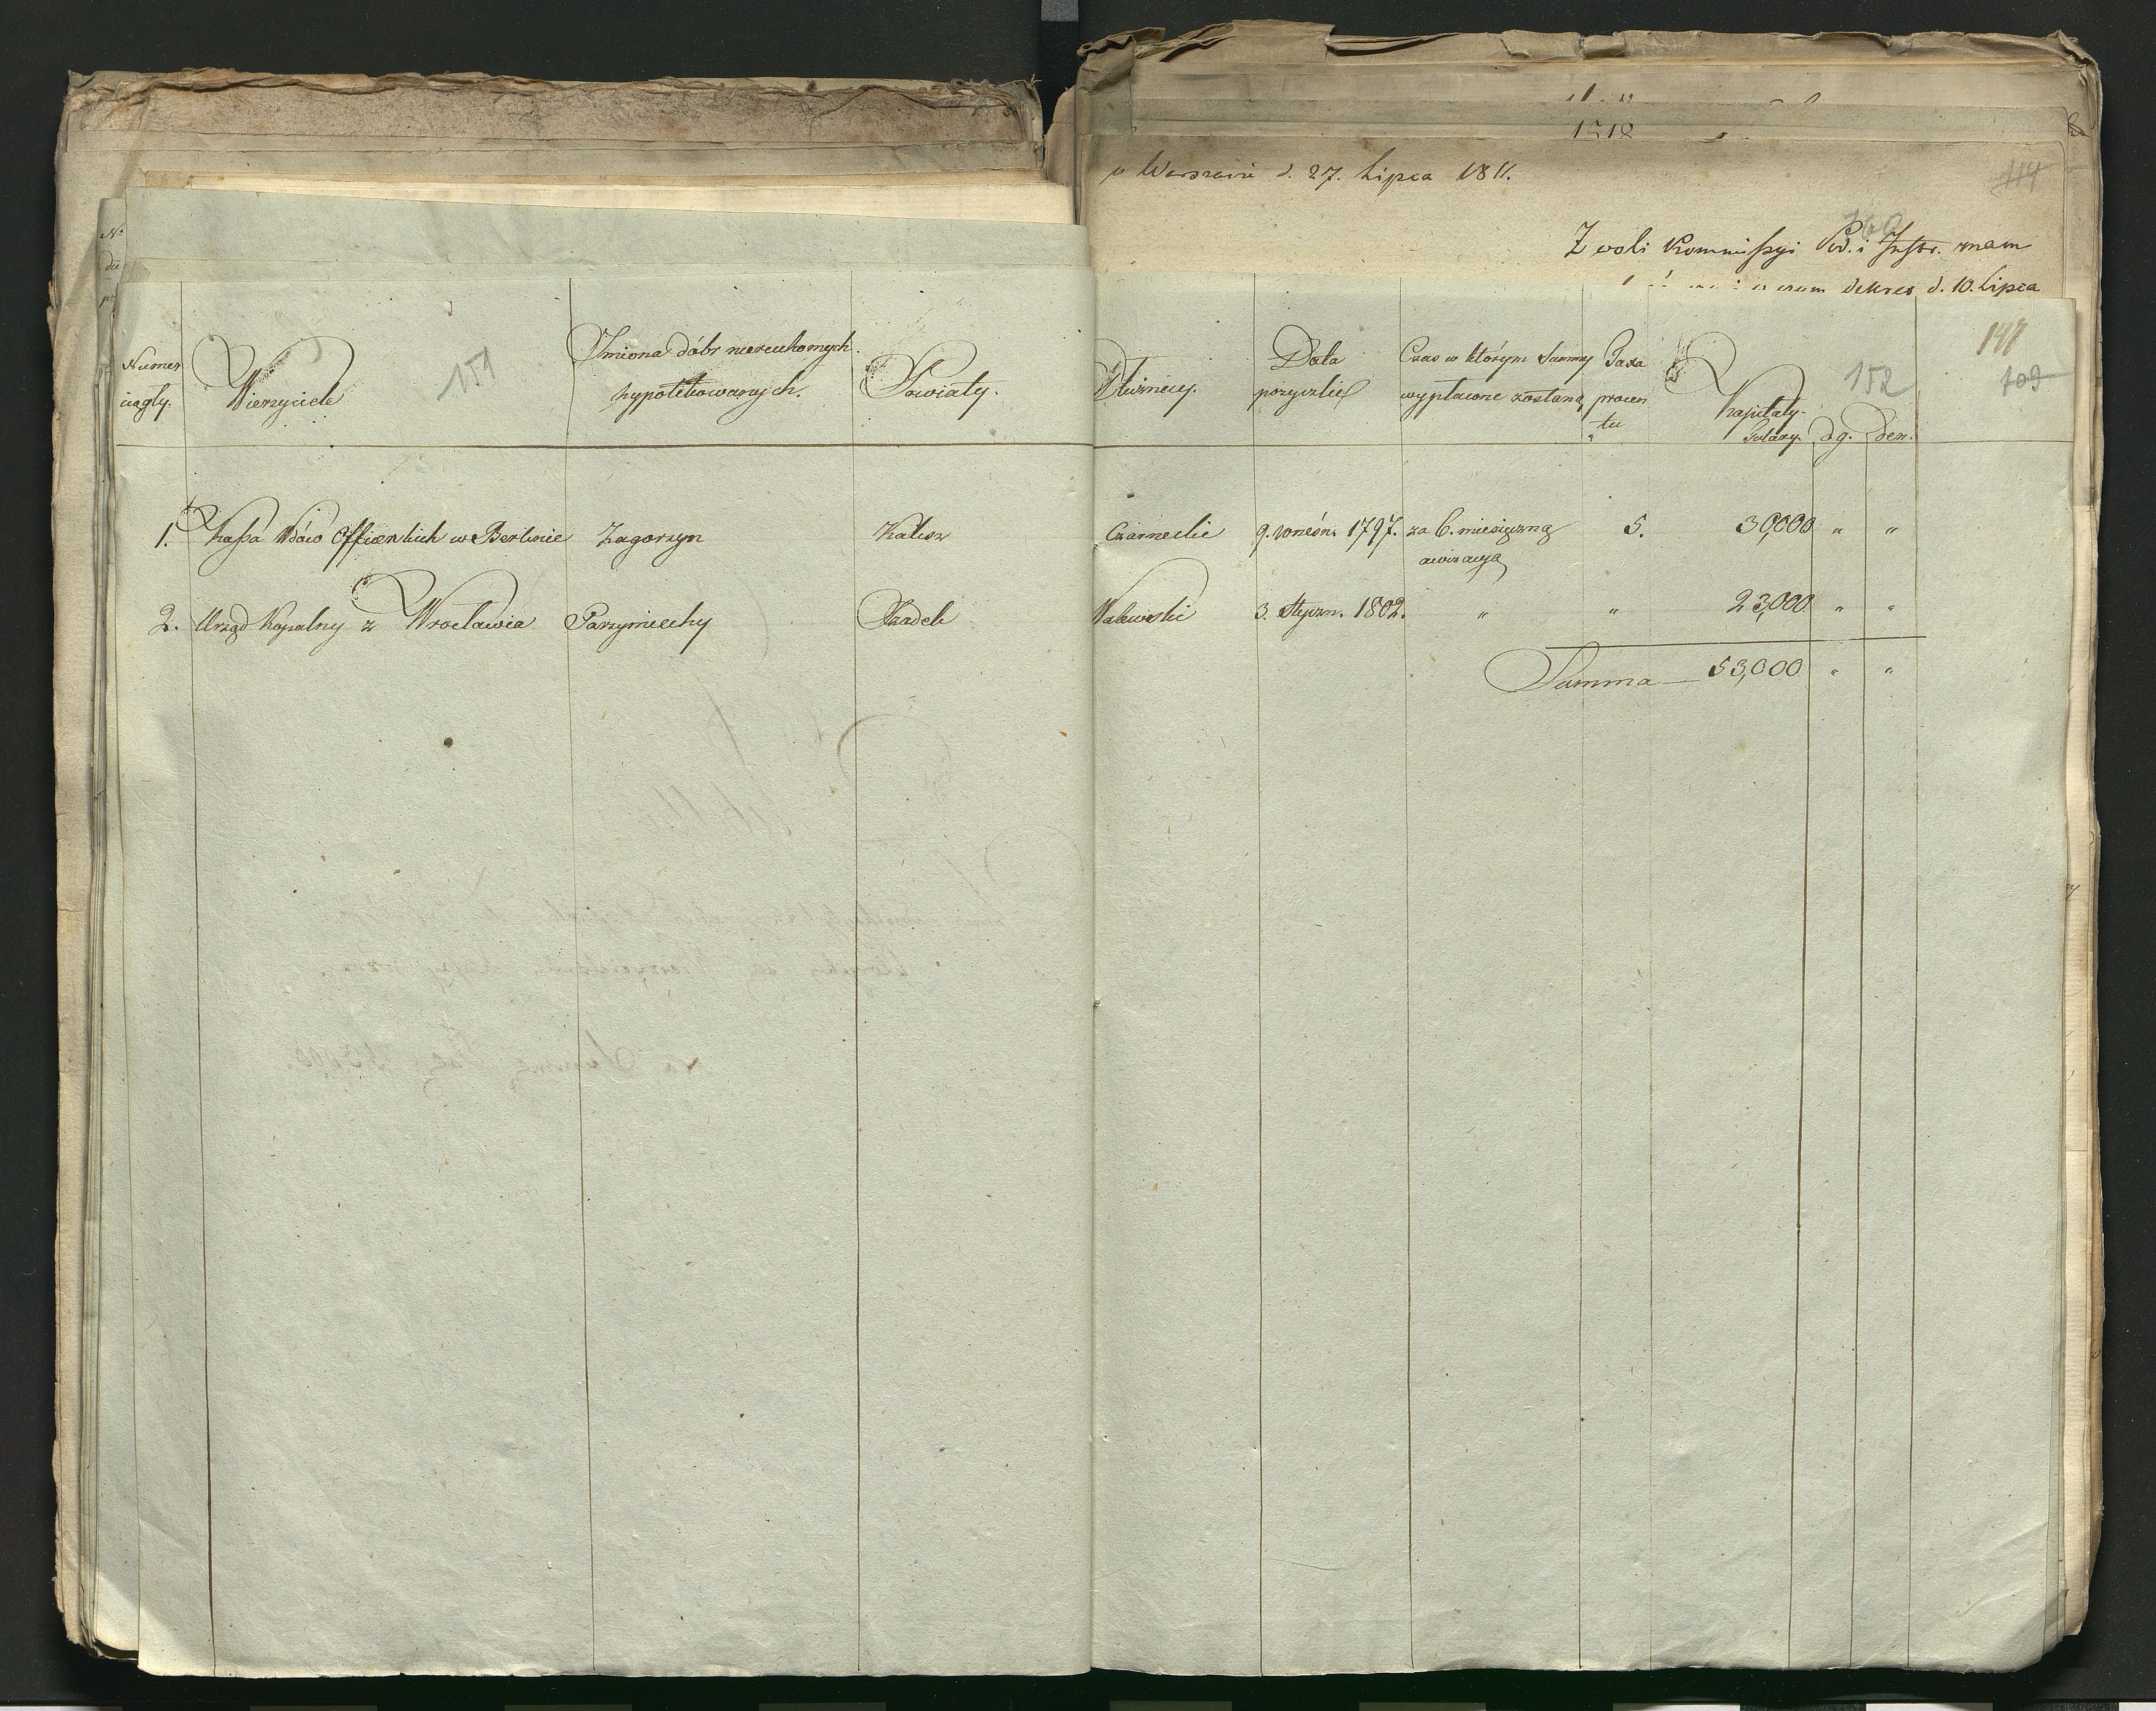 1812
w Warszawie d. 27. Lipca 1811.
114
160
Z woli Kommissyi Pod. i Instr. mam
dekret d. 10. Lipca
147
109
151
152
Numer ciągły.
Wierzyciele
Imiona dóbr nieruchomych hypotekowanych.
Powiaty.
Dłużnicy.
Data pożyczki
Czas w którym Summy wypłacone zostaną
Taxa procentu
Kapitały.
Talary. dg. den.
1. Kassa Wdów Officerskich w Berlinie Zagorzyn Kalisz Czarnecki 9. Wrześn. 1797. za 6. miesięczną 5. 30,000 " "
awizacyą
2. Urząd Kopalny z Wrocławia Parzymiechy Szadek Walewski 3. Styczn. 1802. " " 23,000 " "
Summa — 53,000 " "